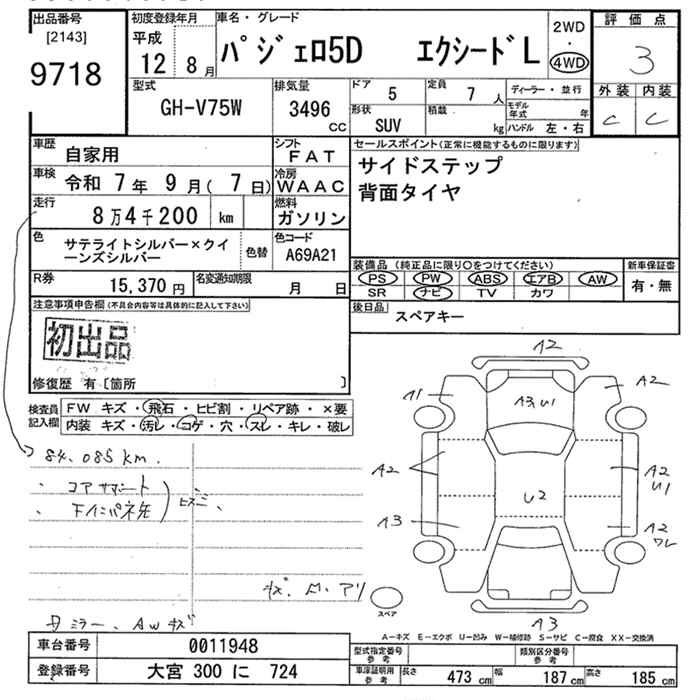 出品番号
[2143]
9718
初度登録年月
平成
12 8月
車名・グレード
パジェロ5D エクシードL
2WD
・
4WD
評価点
3
外装 内装
C C
型式
GH-V75W
排気量
3496
CC
ドア 5
定員 7人
形状
SUV
積載
kg
ディーラー・並行
モデル年式 年
ハンドル 左・右
車歴
自家用
シフト
FAT
車検 令和 7年 9月( 7日)
冷房
WAAC
走行
8万4千200 km
燃料
ガソリン
色
サテライトシルバー×クイーンズシルバー
色替
色コード
A69A21
R券 15,370円
名変通知期限 月 日
セールスポイント(正常に機能するものに限ります)
サイドステップ
背面タイヤ
装備品(純正品に限り○をつけてください)
PS PW ABS エアB AW
SR ナビ TV カワ
新車保証書
有・無
後日品 スペアキー
注意事項申告欄(不具合内容等は具体的に記入して下さい)
初出品
修復歴 有〔箇所 〕
検査員記入欄
FW キズ・飛石・ヒビ割・リペア跡・×要
内装 キズ・汚レ・コゲ・穴・スレ・キレ・破レ
84,085km.
・コアサポート
・下
キズ
ミラー、AWキズ
A2
A1
A2
A3,U1
A2
A2
U1
U2
A3
A2
ワレ
A3
スペア
A-キズ E-エクボ U-凹み W-補修跡 S-サビ C-腐食 XX-交換済
車台番号 0011948
登録番号 大宮 300 に 724
型式指定番号
参考
類別区分番号
参考
車庫証明用
参考
長さ 473cm 幅 187cm 高さ 185cm